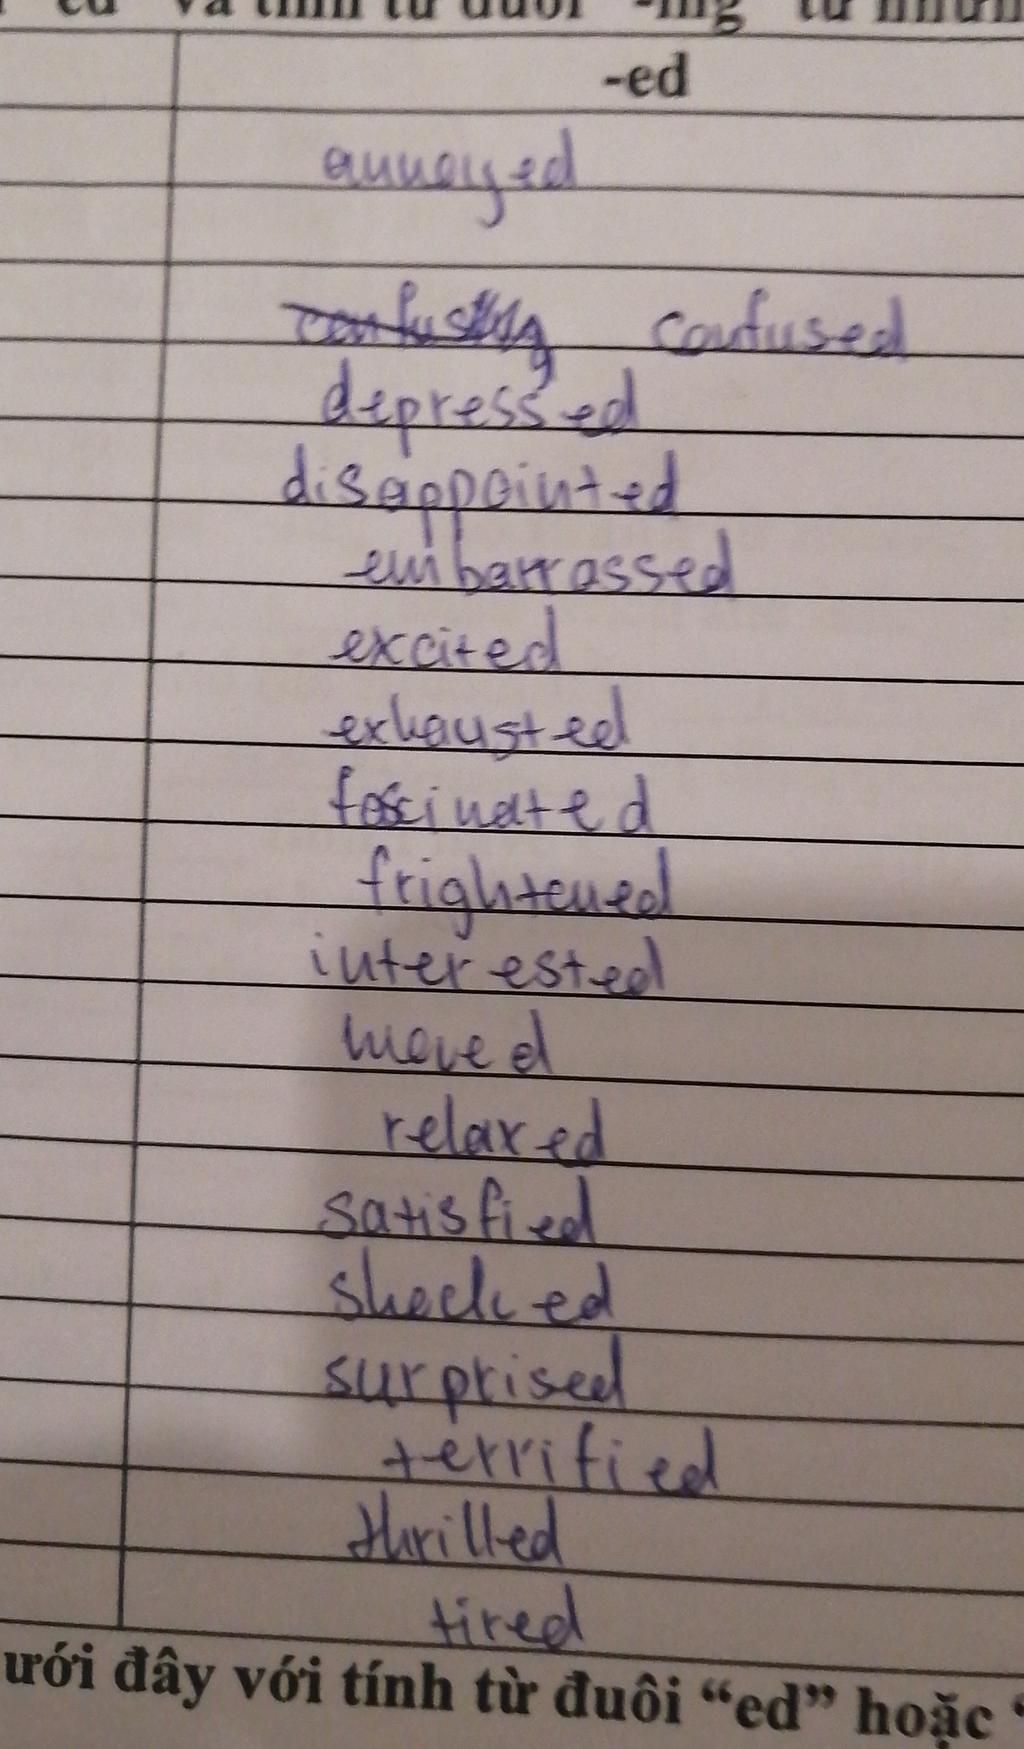 và tính từ đuôi "-ing" từ
-ed
annoyed
confused
depressed
disappointed
embarrassed
excited
exhausted
fascinated
frightened
interested
moved
relaxed
satisfied
shocked
surprised
terrified
thrilled
tired
ưới đây với tính từ đuôi “ed” hoặc “